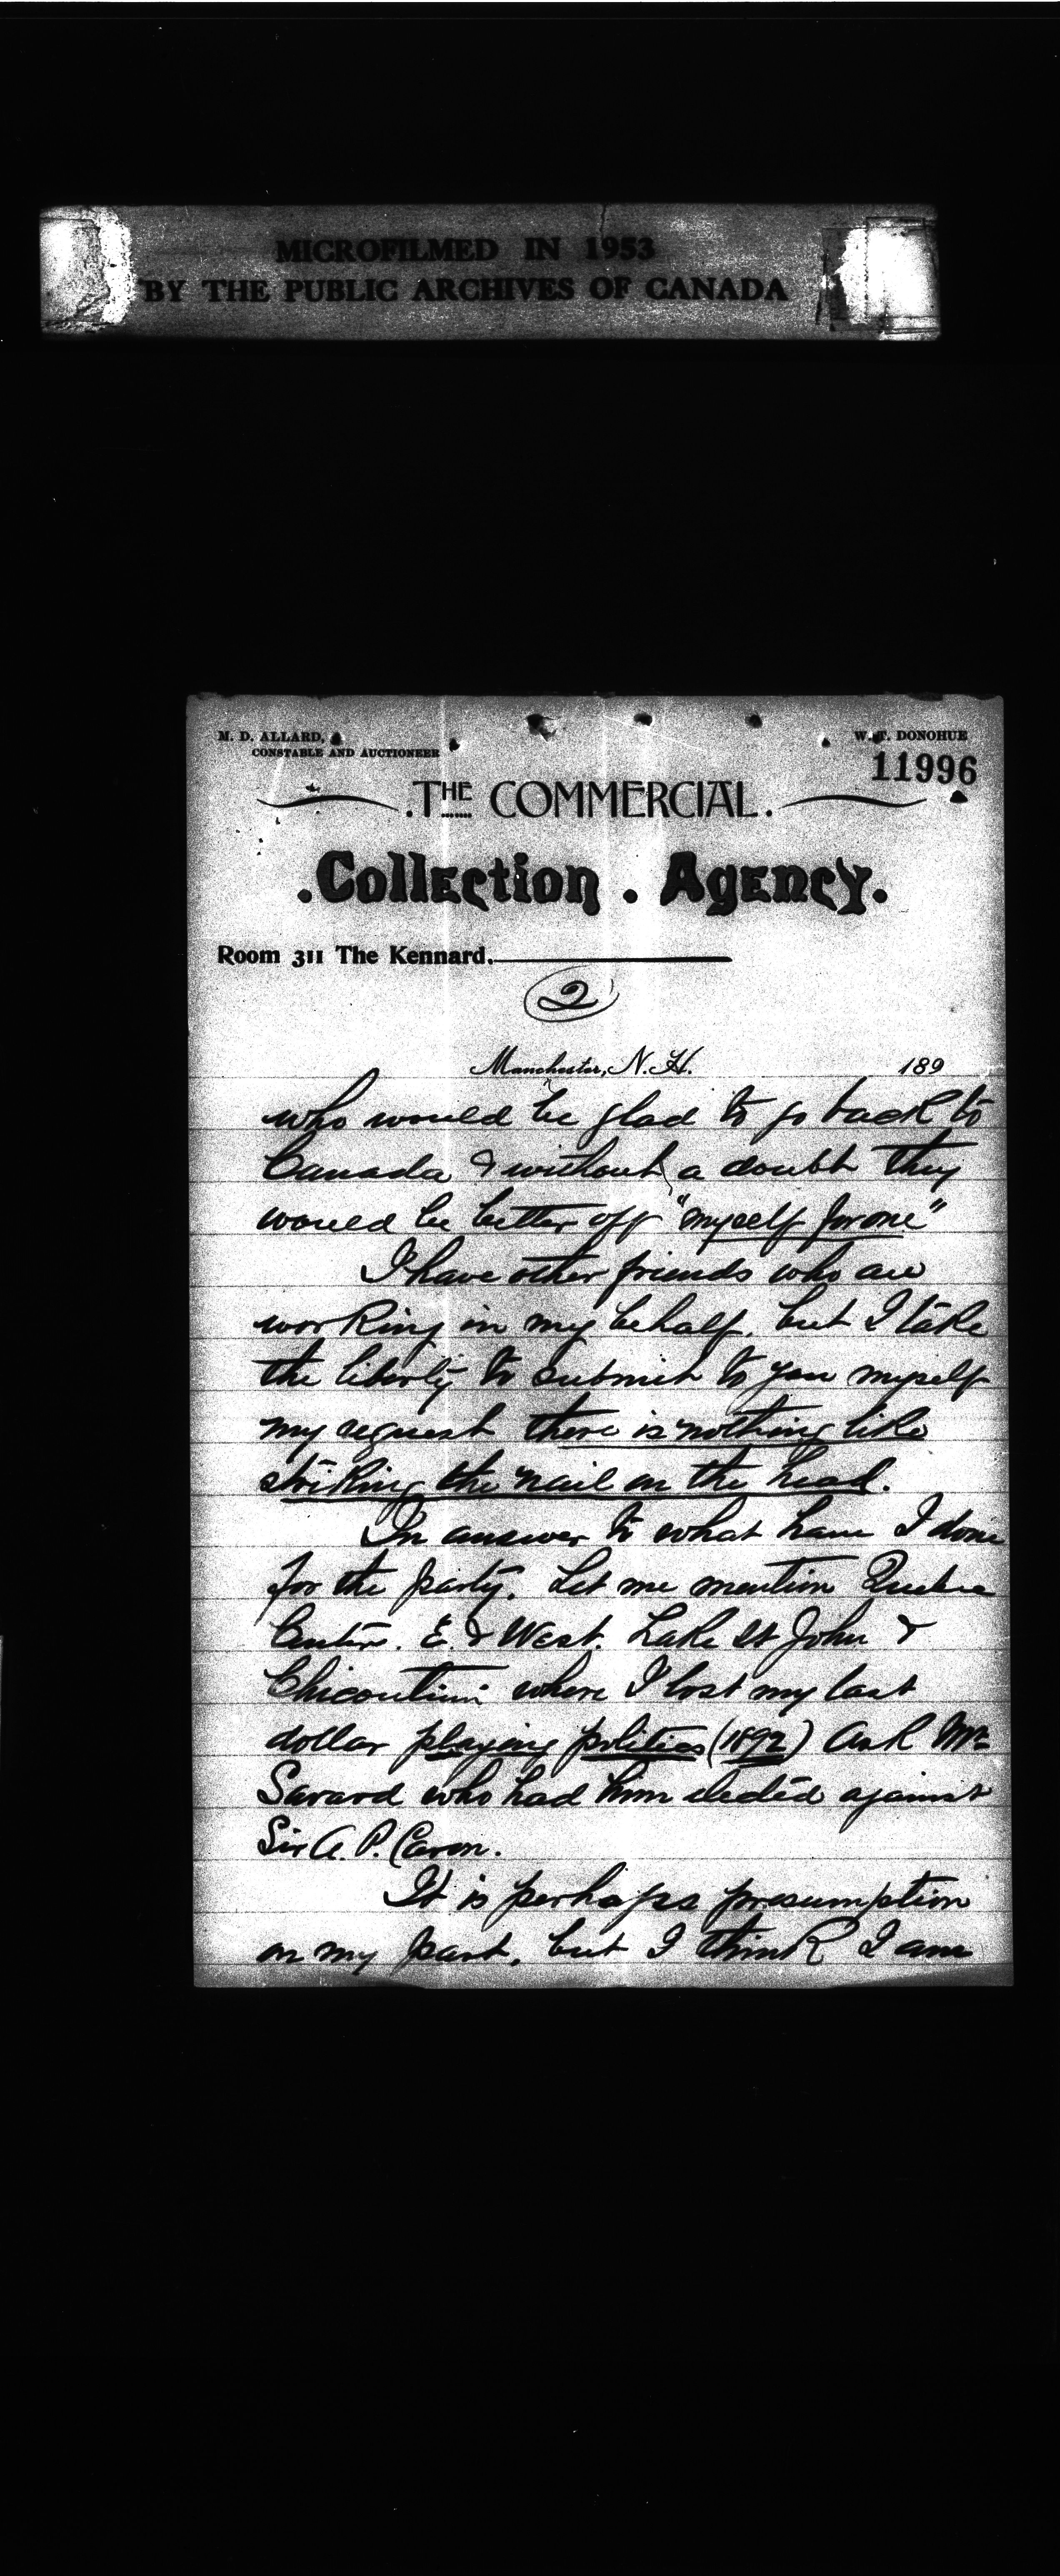 MICROFILMED IN 1953
BY THE PUBLIC ARCHIVES OF CANADA
M. D. ALLARD,
CONSTABLE AND AUCTIONEER
W. T. DONOHUE
11996
.THE COMMERCIAL.
.Collection . Agency.
Room 311 The Kennard.
2
Manchester, N. H. 189
who would be glad to go back to
Canada & without a doubt they
would be better off "myself for one"
I have other friends who are
working in my behalf, but I take
the liberty to submit to you myself
my request there is nothing like
striking the nail on the head.
In answer to what have I done
for the party. Let me mention Quebec
Centre. E. & West. Lake St John &
Chicoutimi where I lost my last
dollar playing politics (1892) ask Mr
Savard who had him elected against
Sir A. P. Caron.
It is perhaps presumption
on my part, but I think I am